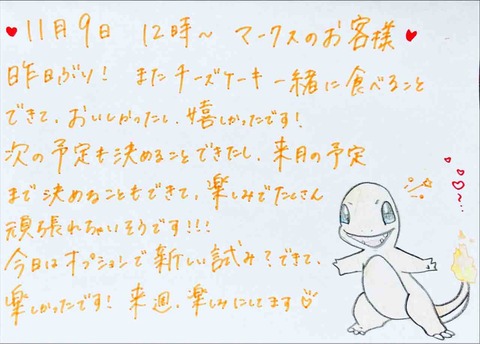 ♥11月9日 12時〜 マークスのお客様♥
昨日ぶり! またチーズケーキ一緒に食べること
できて、おいしかったし、嬉しかったです!
次の予定も決めることできたし、来月の予定
まで決めることもできて、楽しみでたくさん
頑張れちゃいそうです!!!
今日はオプションで新しい試み?できて、
楽しかったです! 来週、楽しみにしてます♡